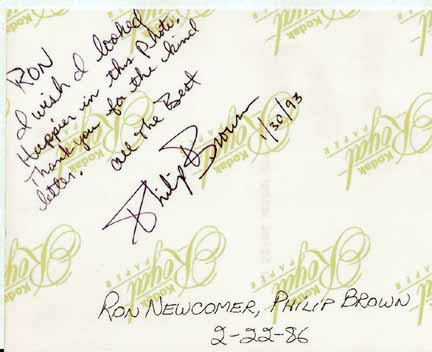 RON
I wish I looked
Happier in this Photo.
Thank you for the kind
letter.
All the Best
Philip Brown
1/30/93
Kodak
Royal
PAPER
RON NEWCOMER, PHILIP BROWN
2-22-86